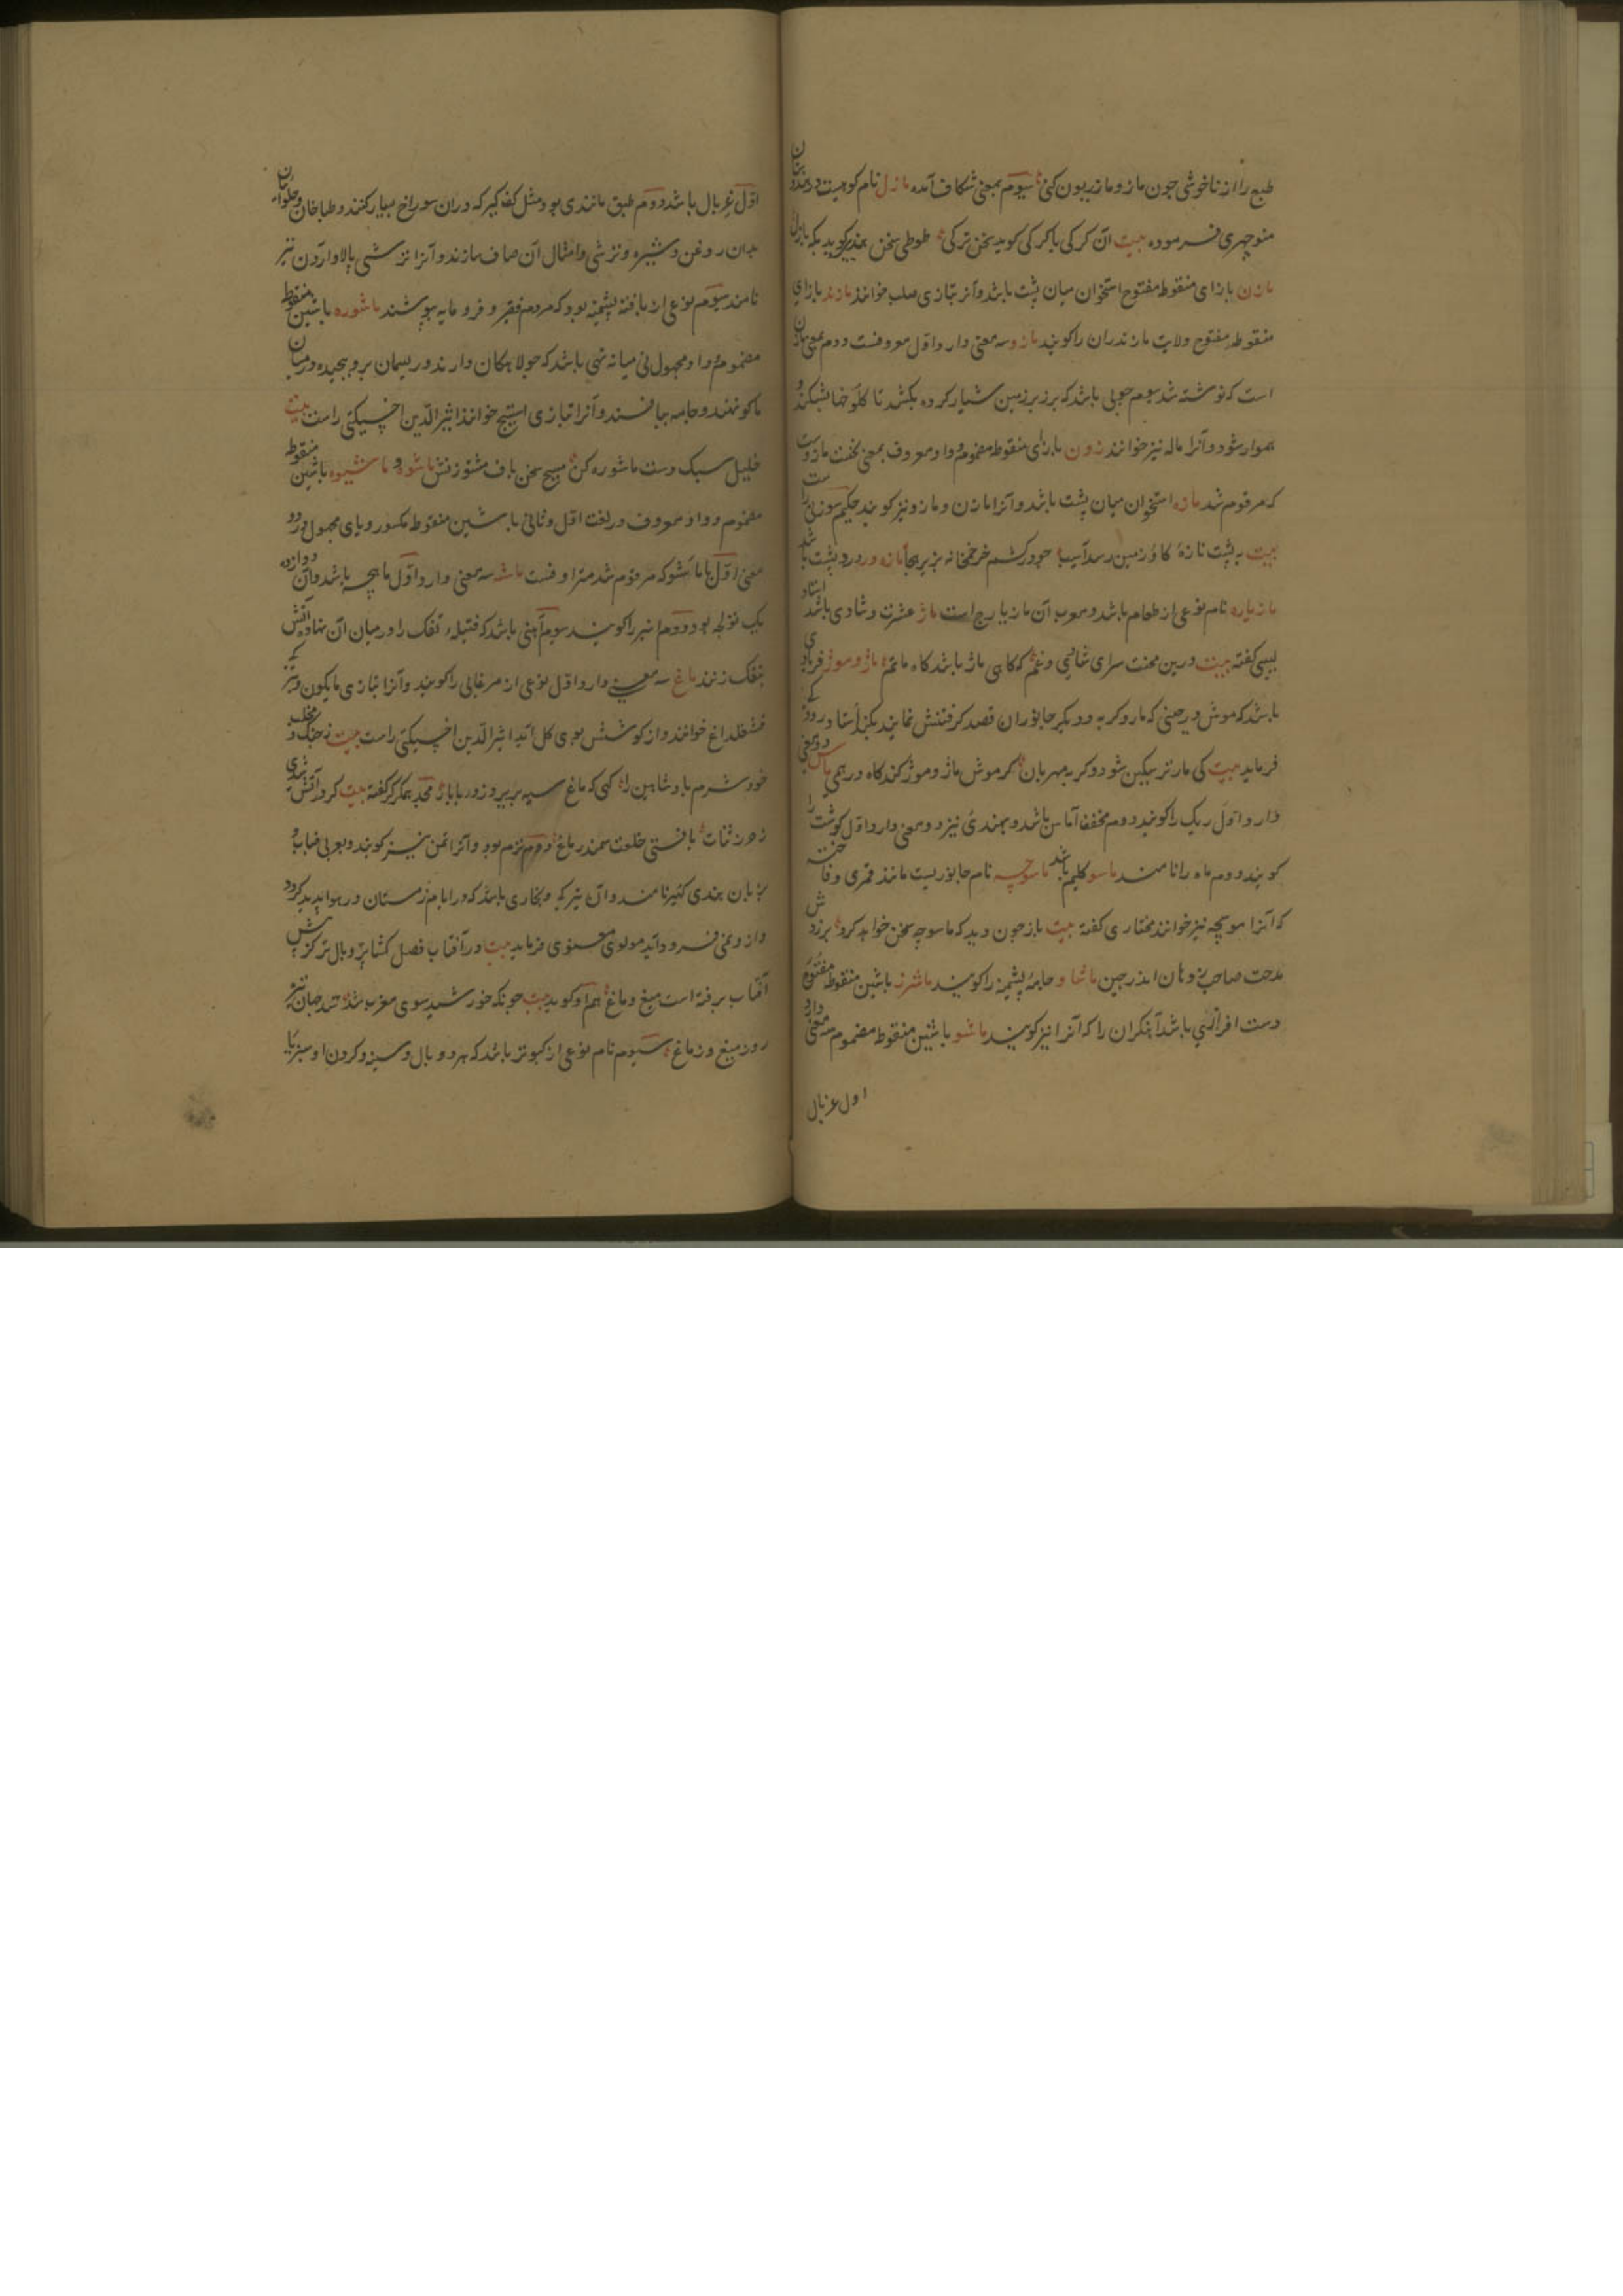 طبع را از ناخوشی چون مازو مازریون کنی سیوم بمعنی شکاف آمده مازل نام کوهیست در هندوستان
منوچهری فرموده بیت آن کرکی با کرکی کوید سخن ترکی طوطی سخن هندی کوید بکه مازل
مازن بازای منقوطه مفتوح استخوان میان پشت باشد و آنرا بتازی صلب خوانند مازند بازای
منقوطه مفتوح ولایت مازندران را کویند مازو سه معنی دارد اول معروفست دوم بمعنی مازن
است که نوشته شد سیوم چوبی باشد که بر زبر زمین شیار کرده بکشند تا کلوخها بشکند و
هموار شود و آنرا ماله نیز خوانند زون بازای منقوطه مضموم و واو معروف بمعنی نخست مازوست
که مرقوم شد مازه استخوان میان پشت باشد و آنرا مازن و مازو نیز کویند حکیم سوزنی راست
بیت به پشت مازهٔ کاو زمین رسد آسیب چو در کشم خر خمخانه بزیر مازه ور درو پشت باشد
مازیاره نام نوعی از طعام باشد و معرب آن مازیارج است ماژ عشرت و شادی باشد استاد
لبیبی کفته بیت درین محنت سرای شادی و غم که کاهی ماژ باشد کاه ماتم ماژ و موژ فریادی
باشد که موش در حینی که مار و کربه و دیکر جانوران قصد کرفتنش نمایند بکند استاد رودکی
فرماید بیت کی مار ترسکین شود و کربه مهربان کر موش ماژ و موژ کند کاه درهمی ماس دو معنی
دارد اول ریک را کویند دوم مخفف آماس باشد و بهندی نیز دو معنی دارد اول کوشت را
کویند دوم ماه را نامند ماسو کلیم باشد ماسوچه نام جانوریست مانند قمری و فاخته
که آنرا موسیچه نیز خوانند مختاری کفته بیت باز چون دید که ماسوچه سخن خواهد کرد برزدش
مدحت صاحب ز دهان اندر چین ماشا و جامهٔ پشمینه را کویند ماشرز باشین منقوطه مفتوح
دست افزاری باشد آهنکران را که آنرا نیز کویند ماشو باشین منقوطه مضموم سه معنی دارد
اول غربال
اول غربال باشد دوم طبق مانندی بود مثل کفکیر که دران سوراخ بسیار کنند و طباخان و حلوائیان
بدان روغن و شیره و ترشی و امثال آن صاف سازند و آنرا ترشی پالا و آردن نیز
نامند سیوم نوعی از بافتهٔ پشمینه بود که مردم فقیر و فرومایه پوشند ماشوره باشین منقوطه
مضموم و واو مجهول نی میانه تهی باشد که جولاهکان دارند و ریسمان برو پیچیده در میان
ماکو نهند و جامه ببافند و آنرا بتازی خوانند اثیر الدین اخسیکتی راست بیت
خلیل سبک دست ماشوره کن مسیح سخن باف ماشو و ماشیوه باشین منقوطه
مضموم و واو معروف در لغت اول و ثانی باشین منقوطه مکسور و یای مجهول هر دو
بمعنی اول ماشو که مرقوم شد مترادفست ماشه سه معنی دارد اول ماهچه باشد و آن دوازده
یک تولچه بود دوم انبر را کویند سیوم آهنی باشد که فتیلهٔ تفنک را در میان آن نهاده آتش
بتفنک زنند ماغ سه معنی دارد اول نوعی از مرغابی را کویند و آنرا بتازی مایکون و بترکی
قشقلداغ خوانند و از کوشتش بوی کل آید اثیر الدین اخسیکتی راست بیت ز جنک و مخلب
خود شرم باد شاهین را کهی که ماغ سیه بر پرد ز دریا باز مجد همکر کفته بیت کر در آتش شدی
ز صدر ثبات یافتی خلعت سمندر ماغ دوم نزم بود و آنرا نمن نیز کویند و بعربی ضباب و
بزبان هندی کهر نامند و آن تیره کی و بخاری باشد که در ایام زمستان در هوا پدید کردد
و از و نمی فرود آید مولوی معنوی فرماید بیت در آفتاب فضل کشا پر و بال ترکز پیش
آفتاب برفته است میغ و ماغ هم او کوید بیت چونکه خورشید سوی مغرب شد شد جهان تیره
روز میغ و ز ماغ سیوم نام نوعی از کبوتر باشد که هر دو بال و سینه و کردن او سبز یا